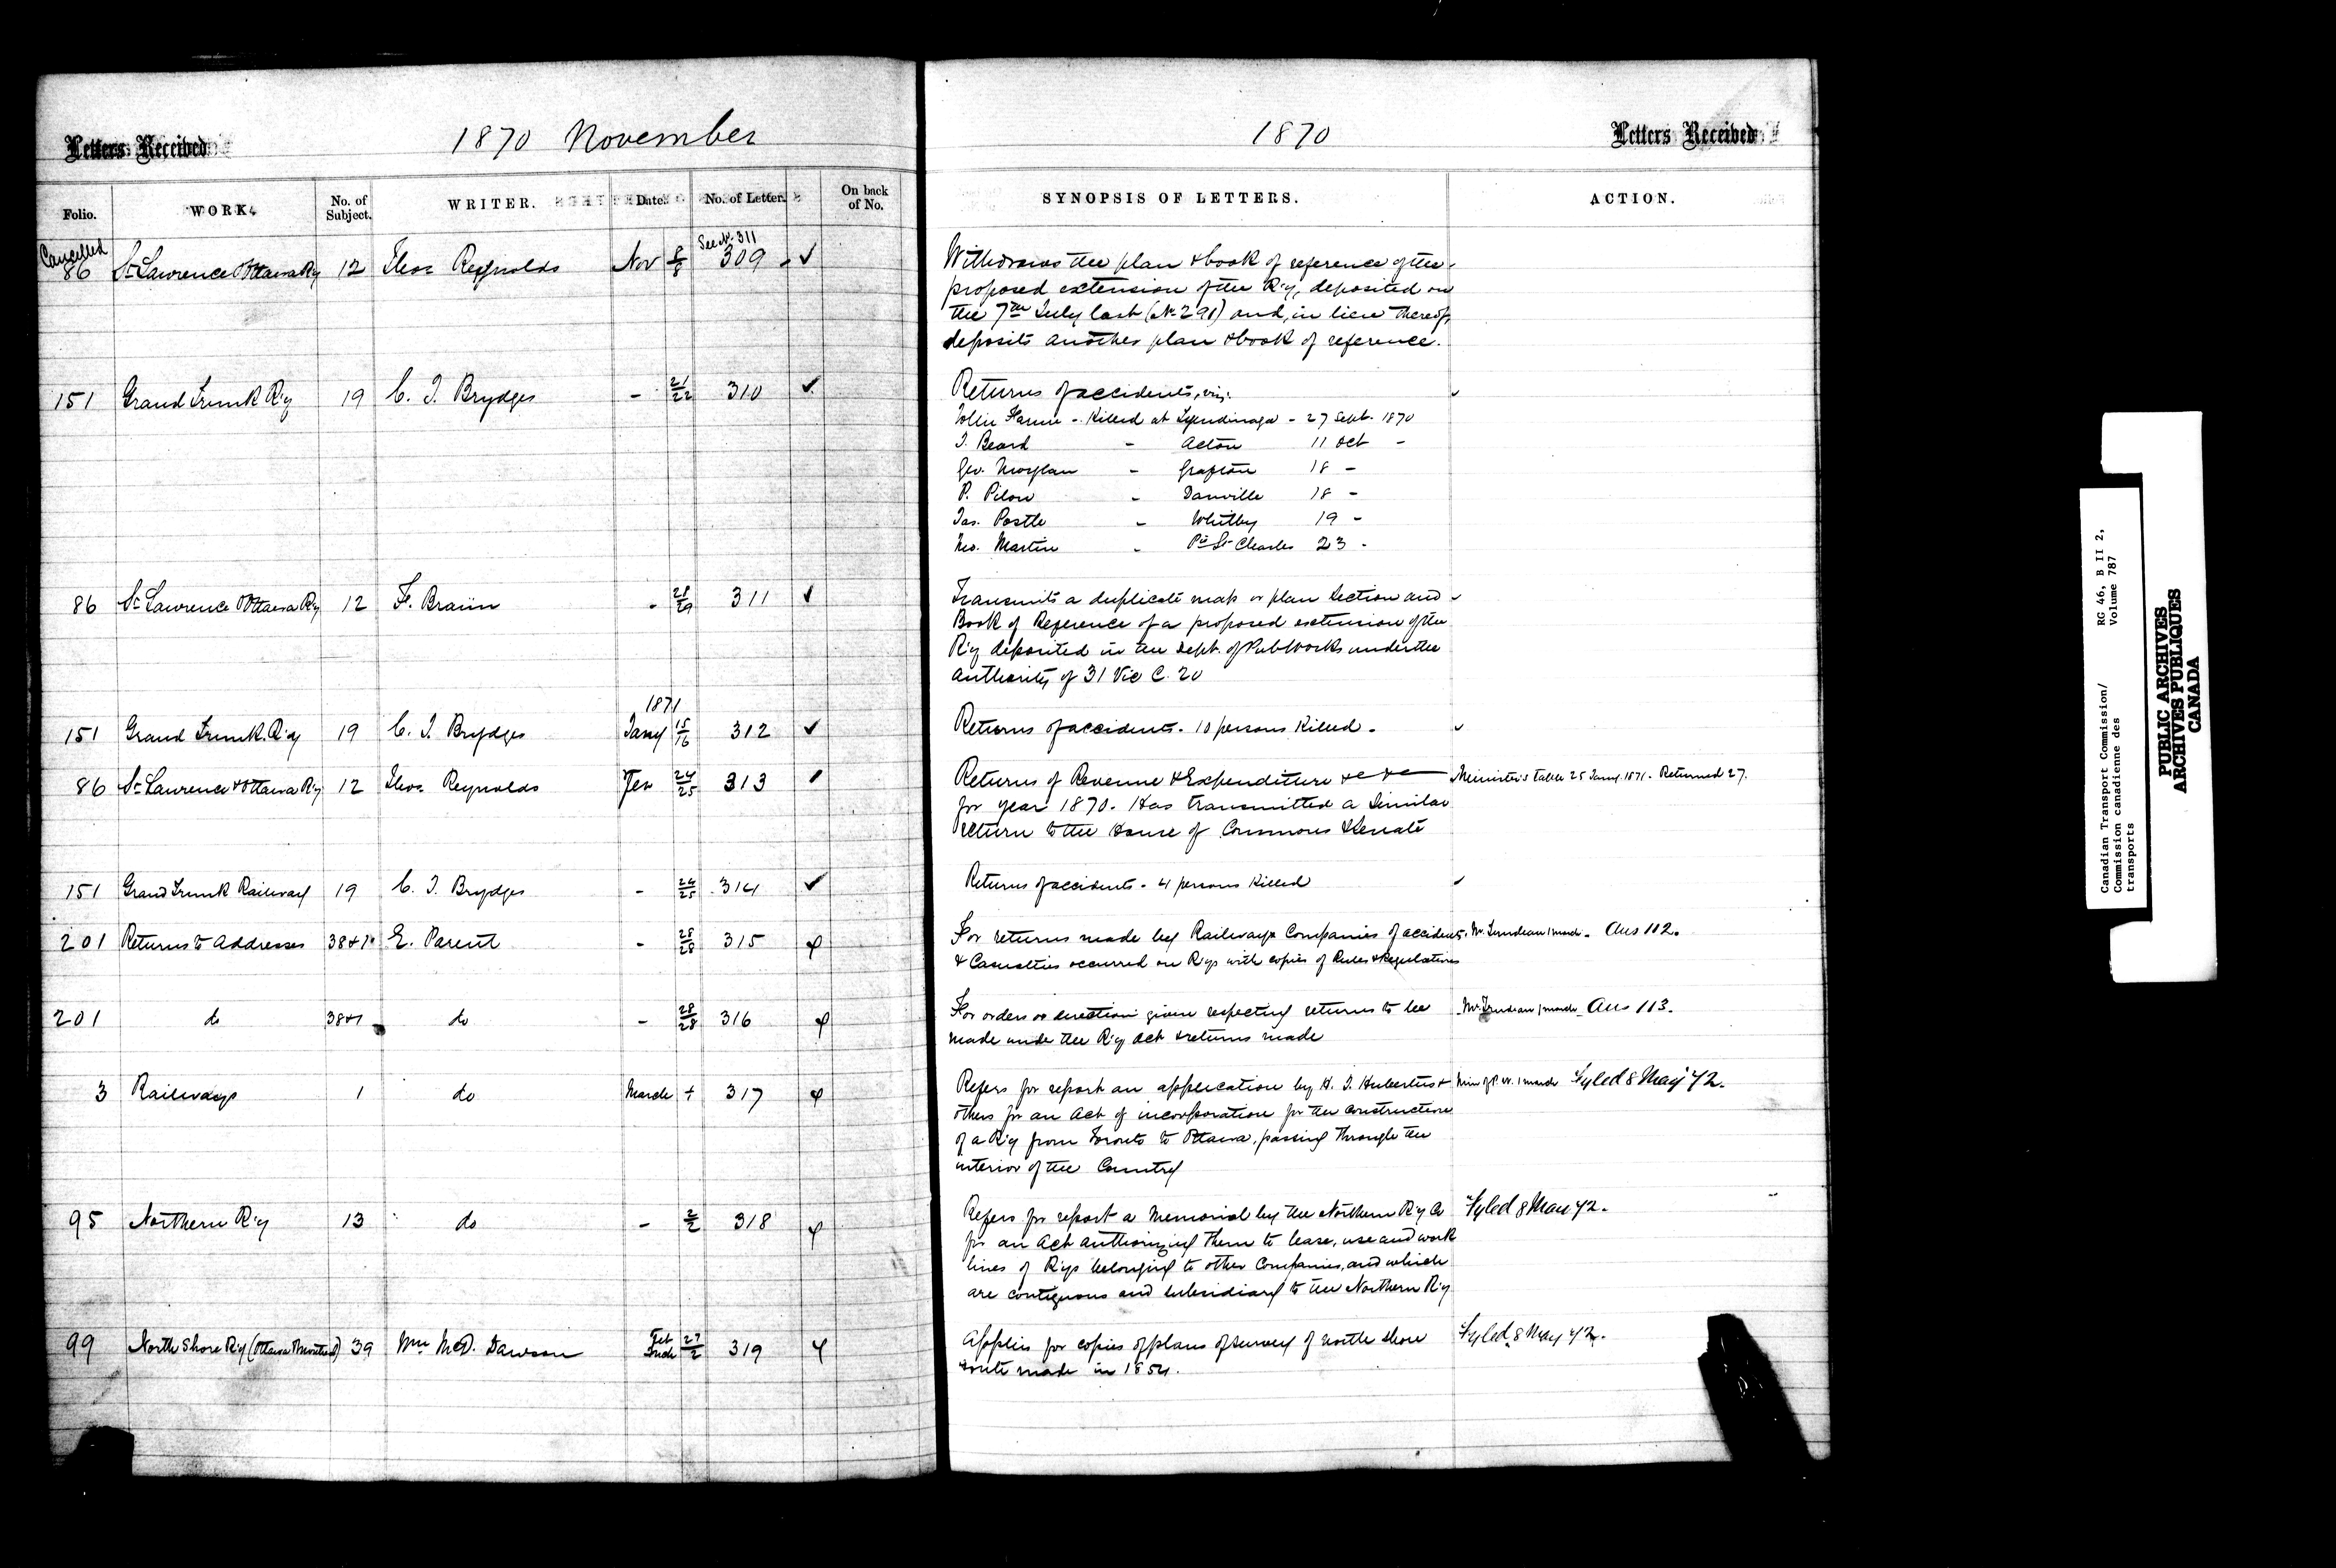 1870 November
1870
Letters Received
Letters Received
Folio. WORK. No. of Subject. WRITER. Date. No. of Letter. On back of No.
SYNOPSIS OF LETTERS. ACTION.
Cancelled
See No. 311
86 St Lawrence & Ottawa Ry 12 Thos Reynolds Nov 8/8 309 ✓
Withdraws the plan & book of reference of the
proposed extension of the Ry, deposited on
the 7th July last (No 291) and, in lieu thereof,
deposits another plan & book of reference.
151 Grand Trunk Ry 19 C. J. Brydges - 21/22 310 ✓
Returns of accidents, viz:
- Killed at Tyendinaga - 27 Sept. 1870
J. Beard - Acton 11 Oct -
Geo. - Grafton 18 -
P. Pilon - Danville 18 -
Jas. Postle - Whitby 19 -
Martin - Pt St Charles 23 -
86 St Lawrence & Ottawa Ry 12 F. Braün - 28/29 311 ✓
Transmits a duplicate map or plan Section and
Book of Reference of a proposed extension of the
Ry deposited in the Dept. of Pub Works under the
authority of 31 Vic C. 20
1871
151 Grand Trunk Ry 19 C. J. Brydges Jany 15/16 312 ✓
Returns of accidents. 10 persons Killed.
86 St Lawrence & Ottawa Ry 12 Thos Reynolds 24/25 313
Returns of Revenue & Expenditure &c &c Minister's table 25 Jany. 1871. Returned 27.
for year 1870. Has transmitted a similar
return to the House of Commons & Senate
151 Grand Trunk Railway 19 C. J. Brydges - 24/25 314 ✓
Returns of accidents. 4 persons Killed
201 Returns to Addresses 38+1 E. Parent - 28/28 315
For returns made by Railways Companies of accidents. Mr. Trudeau 1 march. Ans 112.
& Casualties occurred on Rys with copies of Rules & Regulations
201 do 38+1 do - 28/28 316
For orders or direction given respecting returns to be Mr. Trudeau 1 march Ans 113.
made under the Ry Act & returns made
3 Railways 1 do March 317
Refers for report an application by H. J. Hubertus & Min of P. W. 1 march Fyled 8 May '72.
others for an Act of incorporation for the construction
of a Ry from Toronto to Ottawa, passing through the
interior of the Country
95 Northern Ry 13 do - 2/2 318
Refers for report a Memorial by the Northern Ry Co Fyled 8 May 72.
for an Act authorizing them to lease, use and work
lines of Rys belonging to other Companies, and which
are contiguous and subsidiary to the Northern Ry
99 North Shore Ry (Ottawa & Montreal) 39 Wm McD. Dawson Feb 27/2 319
Applies for copies of plans of survey of north shore Fyled 8 May 72.
route made in 1854.
Canadian Transport Commission/
Commission canadienne des
transports
RG 46, B II 2,
Volume 787
PUBLIC ARCHIVES
ARCHIVES PUBLIQUES
CANADA